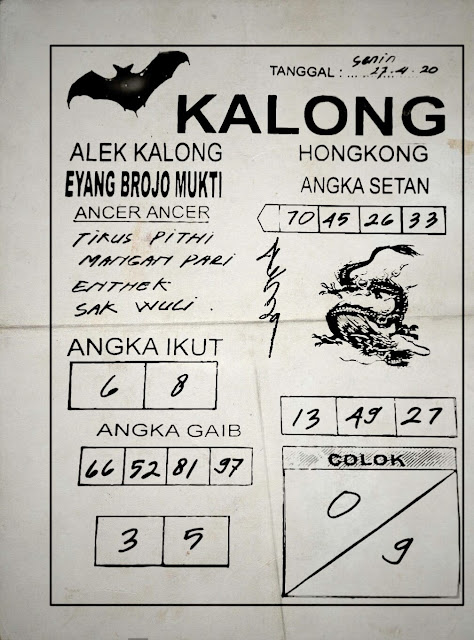 TANGGAL : ... Senin 27.4.20
KALONG
ALEK KALONG
EYANG BROJO MUKTI
ANCER ANCER
TIKUS PITHI
MANGAN PARI
ENTHEK
SAK WULI .
HONGKONG
ANGKA SETAN
70 45 26 33
ANGKA IKUT
6 8
ANGKA GAIB
66 52 81 97
3 5
13 49 27
COLOK
0
9